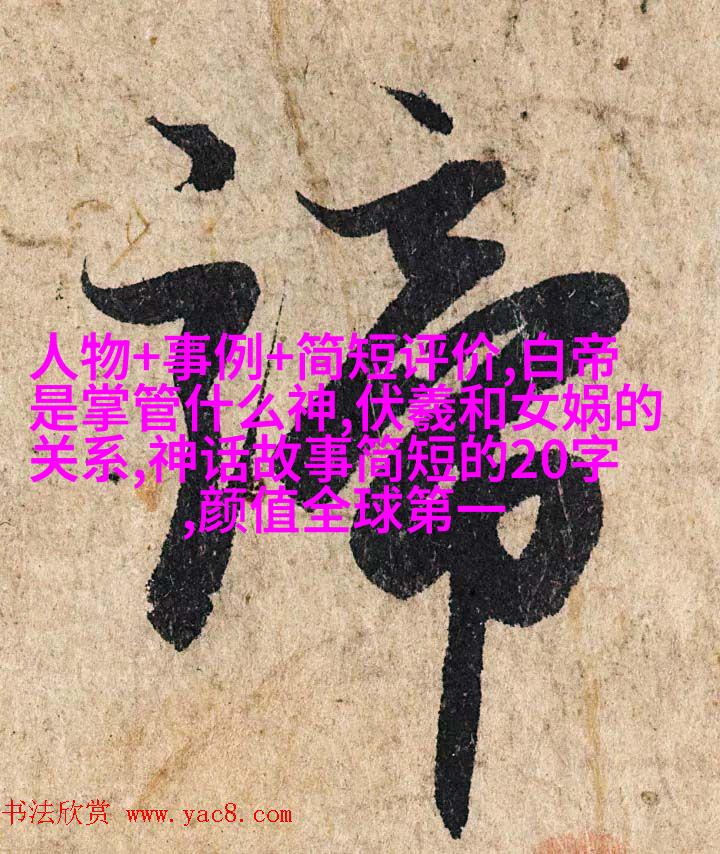 谛
人物+事例+简短评价,白帝
是掌管什么神,伏羲和女娲的
关系,神话故事简短的20字
,颜值全球第一
书法欣赏 www.yac8.com